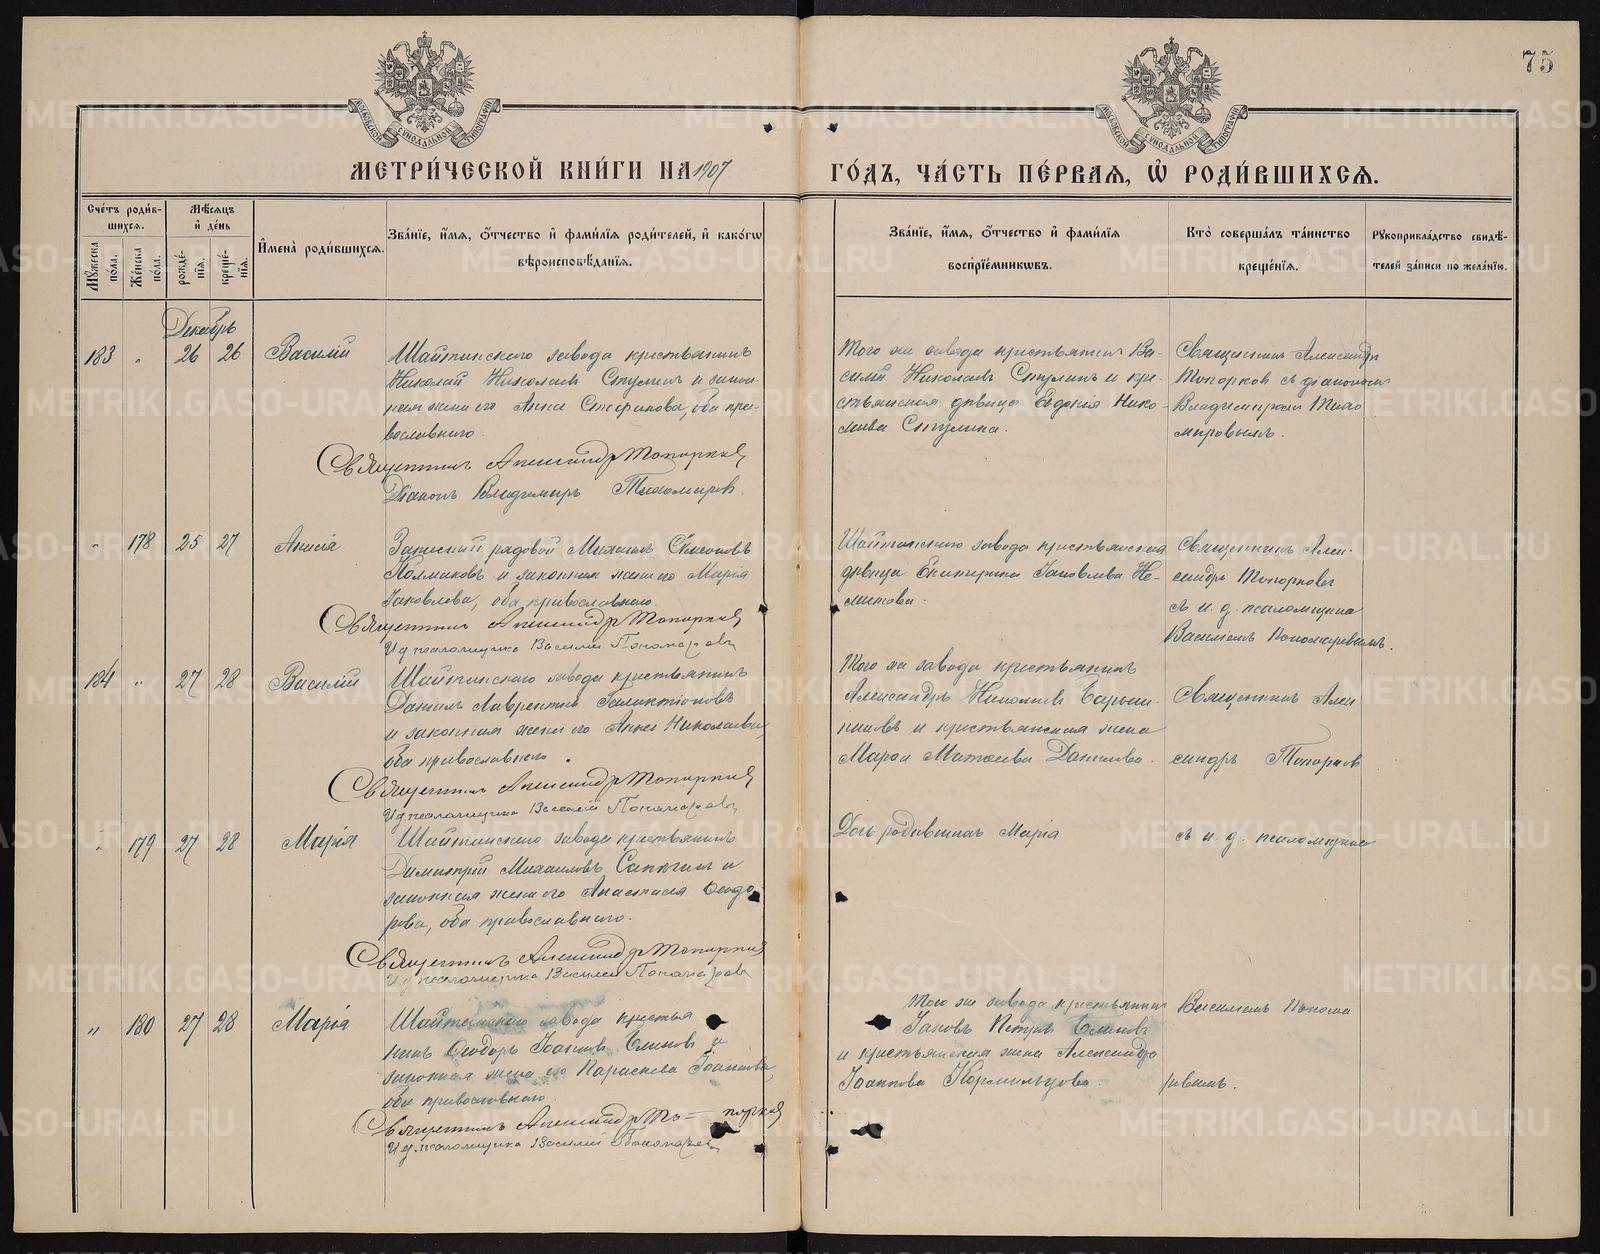 75
МОСКОВСКОЙ СѴНОДАЛЬНОЙ ТИПОГРАФІИ
МОСКОВСКОЙ СѴНОДАЛЬНОЙ ТИПОГРАФІИ
МЕТРИ́ЧЕСКОЙ КНИ́ГИ НА 1907
ГО́ДЪ, ЧА́СТЬ ПЕ́РВАЯ, Ѡ҆ РОДИ́ВШИХСѦ.
Сче́тъ роди́в-
шихсѧ.
Мꙋ́жеска по́ла.
Же́нска по́ла.
Мѣ́сѧцъ
и҆ де́нь
рожде́-
нїѧ.
креще́-
нїѧ.
И҆мена̀ роди́вшихсѧ.
Зва́нїе, и҆́мѧ, ѻ҆́тчество и҆ фами́лїѧ роди́телей, и҆ како́гѡ
вѣроисповѣ́данїѧ.
Зва́нїе, и҆́мѧ, ѻ҆́тчество и҆ фами́лїѧ
воспрїе́мникѡвъ.
Кто̀ соверша́лъ та́инство
креще́нїѧ.
Рꙋкоприкла́дство свидѣ́-
телей за́писи по жела́нїю.
Декабрь
183 " 26 26 Василій
Шайтанскаго завода крестьянинъ
Николай Николаевъ Стулинъ и закон-
ная жена его Анна Стефанова, оба пра-
вославнаго.
Священникъ Александръ Топорковъ
Діаконъ Владимиръ Тихомировъ.
Того же завода крестьянинъ Ва-
силій Николаевъ Стулинъ и кре-
стьянская дѣвица Евдокія Нико-
лаева Стулина.
Священникъ Александръ
Топорковъ съ діакономъ
Владимиромъ Тихо
мировымъ.
" 178 25 27 Анисія
Запасный рядовой Михаилъ
Колмаковъ и законная жена его Марія
Іаковлева, оба православнаго.
Священникъ Александръ Топорковъ
И д псаломщика Василій Пономаревъ
Шайтанскаго завода крестьянская
дѣвица Екатерина Іаковлева
Священникъ Алек-
сандръ Топорковъ
съ и. д. псаломщика
Василіемъ Пономаревымъ.
184 " 27 28 Василій
Шайтанскаго завода крестьянинъ
Даніилъ Лаврентіевъ Галактіоновъ
и законная жена его Анна Николаева,
оба православнаго.
Священникъ Александръ Топорковъ
И д псаломщика Василій Пономаревъ
Того же завода крестьянинъ
Александръ Николаевъ
и крестьянская жена
Матѳеева Данилова.
Священникъ Алек
сандръ Топорковъ
" 179 27 28 Марія
Шайтанскаго завода крестьянинъ
Димитрій Михаиловъ Сапогинъ и
законная жена его Анастасія Ѳеодо
рова, оба православнаго.
Священникъ Александръ Топорковъ
И д псаломщика Василій Пономаревъ
родившихъ Марія
съ и. д. псаломщика
" 180 27 28 Марія
Шайтанскаго завода крестья
нинъ Ѳеодоръ Іоанновъ и
законная жена его Параскева Іоаннова,
оба православнаго.
Священникъ Александръ То= порковъ
И д псаломщика Василій Пономаревъ
Того же завода крестьянинъ
Іаковъ Петровъ
и крестьянская жена Александра
Іоаннова Кормильцова.
Василіемъ Понома
ревымъ.
METRIKI.GASO-URAL.RU